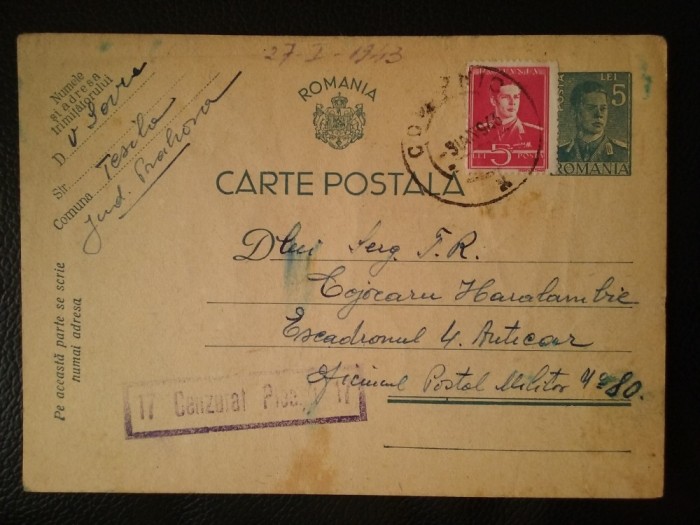 27-I-1943
Numele
și adresa
trimițătorului
D. V
Str. Tesila
Comuna Jud. Prahova
ROMANIA
CARTE POSTALA
ROMANIA
LEI 5 POSTA
POSTA LEI 5
ROMANIA
Dlui Serg. T.R.
Cojocaru Haralambie
Escadronul 4. Anticar
Oficiul Postal Militar No 80.
Pe această parte se scrie
numai adresa
17 Cenzurat 17